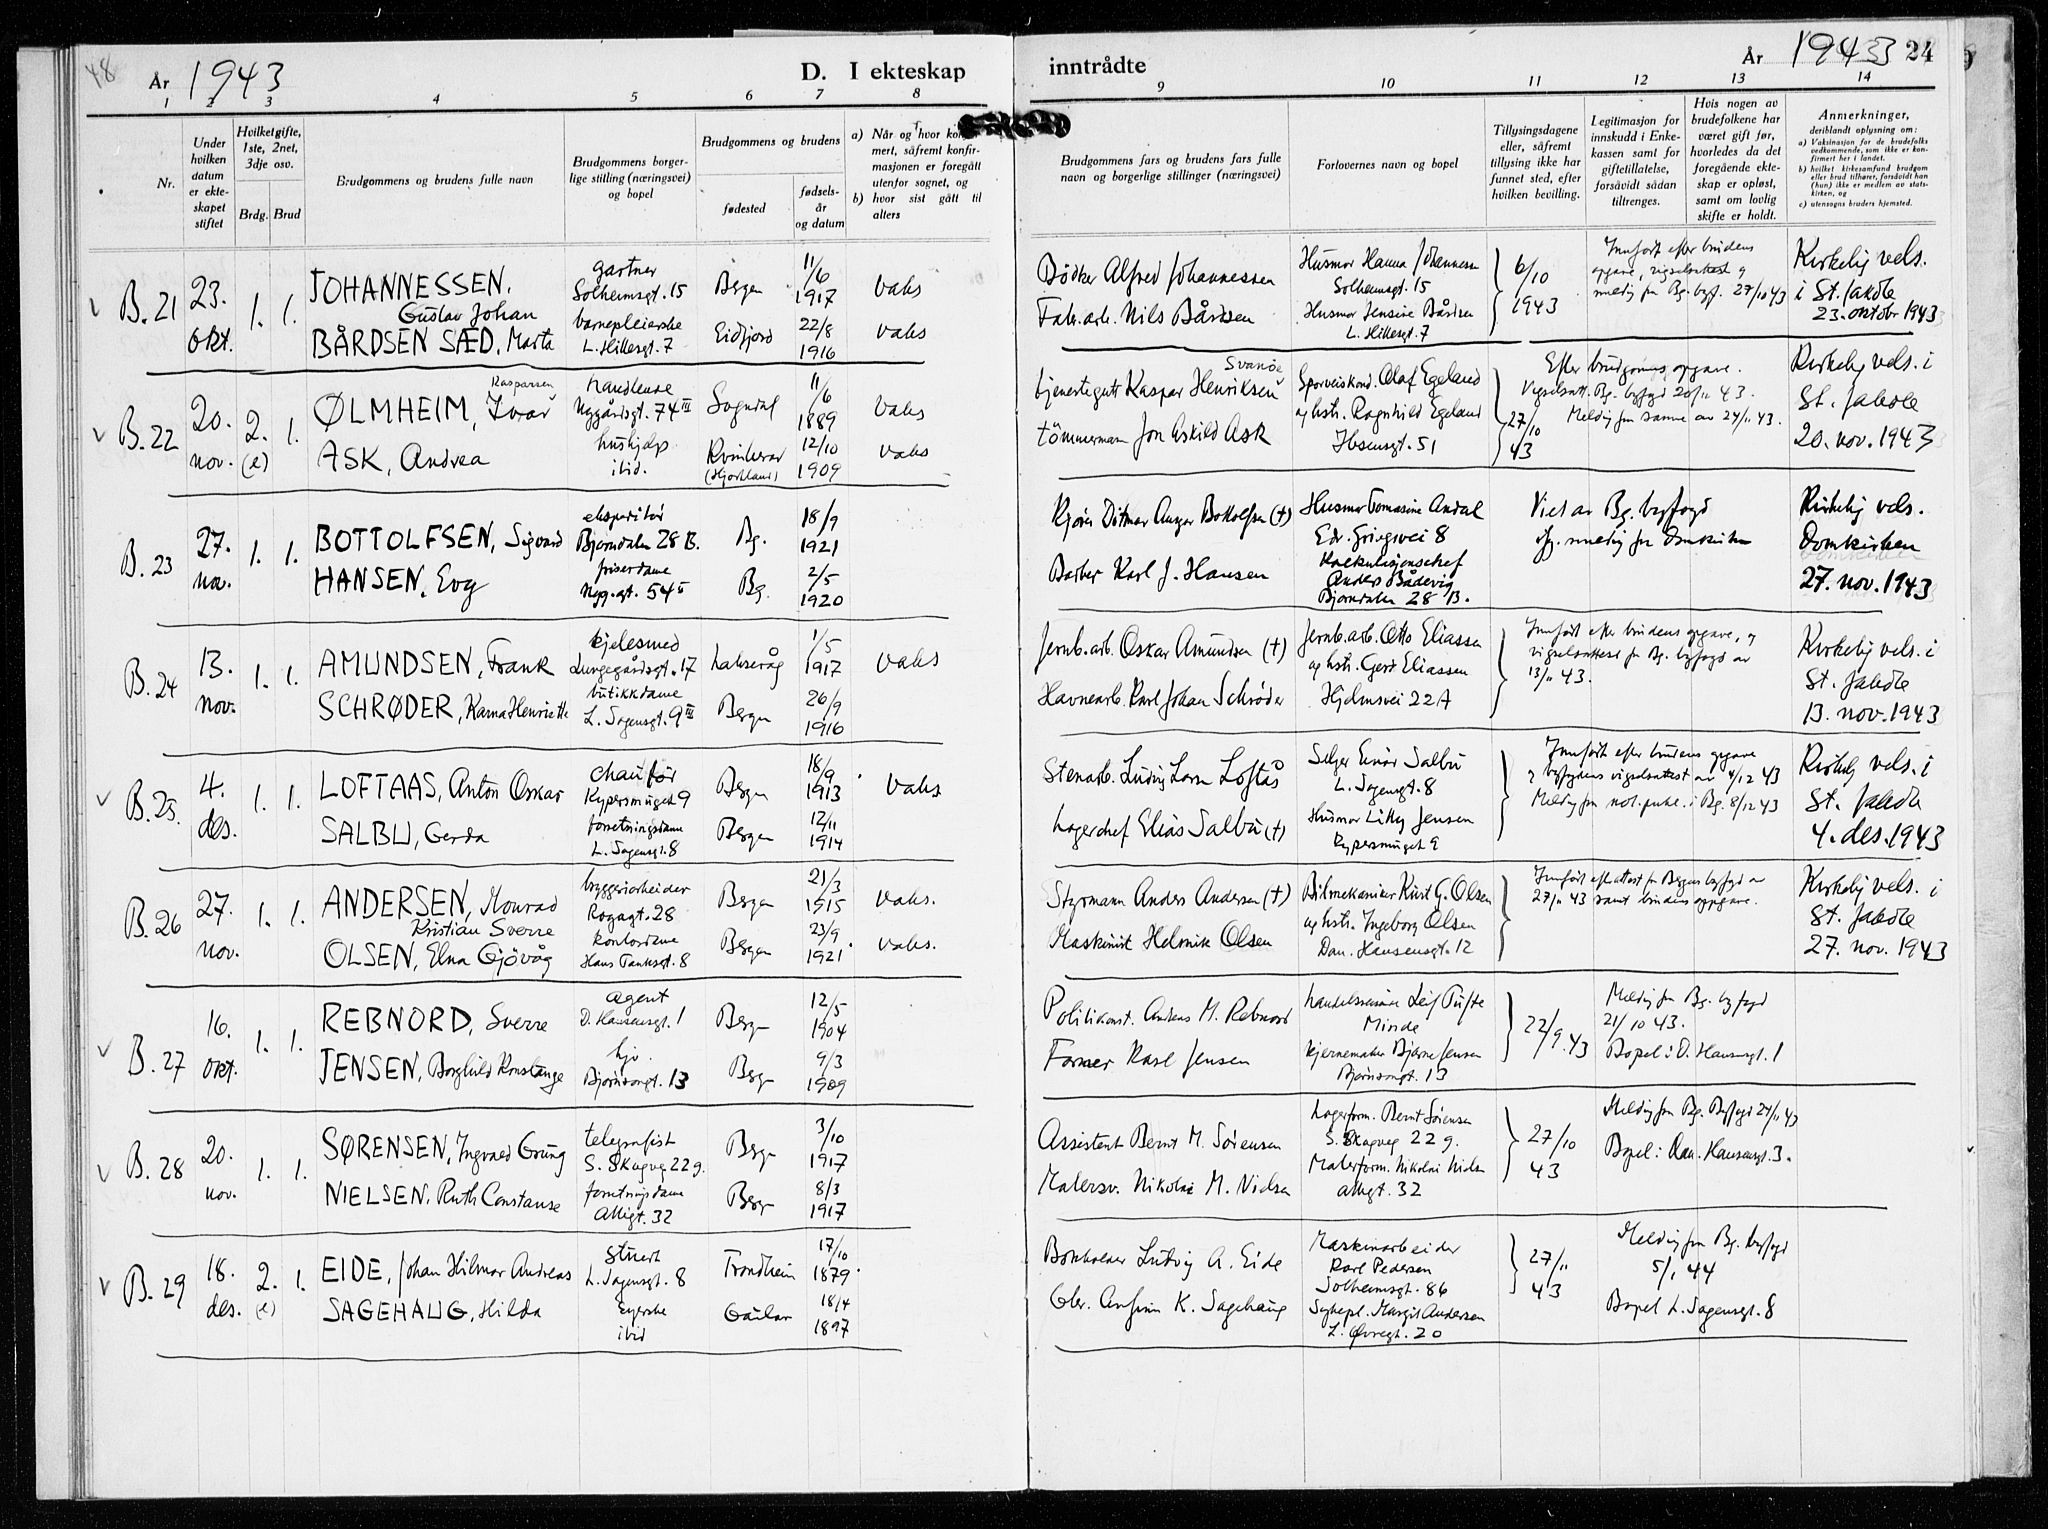 48
År 1943
D. I ekteskap
1 2 3 4 5 6 7 8
Nr.
Under hvilken datum er ekteskapet stiftet
Hvilketgifte, 1ste, 2net, 3dje osv.
Brdg. Brud
Brudgommens og brudens fulle navn
Brudgommens borgerlige stilling (næringsvei) og bopel
Brudgommens og brudens
fødested
fødselsår og datum
a) Når og hvor konfirmert, såfremt konfirmasjonen er foregått utenfor sognet, og
b) hvor sist gått til alters
B. 21
23. okt.
1. 1.
JOHANNESSEN, Gustav Johan
gartner
Solheimsgt. 15
Bergen
11/6 1917
vaks
BÅRDSEN SÆD, Marta
barnepleierske
L. Hillesgt. 7
Eidfjord
22/8 1916
vaks
B. 22
20. nov.
2. (e) 1.
ØLMHEIM, Kasparsen Ivar
Nygårdsgt. 74 III
Sogndal
11/6 1889
vaks
ASK, Andrea
hushjelp
ibid.
Kvinherad
12/10 1909
vaks
B. 23
27. nov.
1. 1.
BOTTOLFSEN, Sigvard
ekspeditør
Bjørndalen 28 B.
Bg.
18/9 1921
HANSEN, Evy
friserdame
Nyg.gt. 54 II
Bg.
2/5 1920
B. 24
13. nov.
1. 1.
AMUNDSEN, Frank
kjelesmed
Lungegårdsgt. 17
Laksevåg
1/5 1917
vaks
SCHRØDER, Karna Henriette
butikkdame
L. Sagensgt. 9 III
Bergen
26/9 1916
B. 25.
4. des.
1. 1.
LOFTAAS, Anton Oskar
chauffør
Kypersmuget 9
Bergen
18/9 1913
vaks
SALBU, Gerda
forretningsdame
L. Sagensgt. 8
Bergen
12/11 1914
B. 26
27. nov.
1. 1.
ANDERSEN, Monrad Kristian Sverre
bryggeriarbeider
Rogagt. 28
Bergen
21/3 1915
vaks.
OLSEN, Elna Gjövåg
kontordame
Hans Tanksgt. 8
Bergen
23/9 1921
vaks.
B. 27
16. okt.
1. 1.
REBNORD, Sverre
agent
D. Hansensgt. 1
Bergn
12/5 1904
JENSEN, Borghild Konstanse
hjv.
Bjørnsonsgt. 13
Bergn
9/3 1909
B. 28
20. nov.
1. 1.
SØRENSEN, Ingvald Grung
telegrafist
S. Skagveg 22 g.
Bergn
3/10 1917
NIELSEN, Ruth Constanse
forretningsdame
Allégt. 32
Bergn
8/3 1917
B. 29
18. des.
2. (e) 1.
EIDE, Johan Hilmar Andreas
stuert
L. Sagensgt. 8
Trondheim
17/10 1879
SAGEHAUG, Hilda
ibid
Gaular
18/4 1897
inntrådte
År 1943 24
9 10 11 12 13 14
Brudgommens fars og brudens fars fulle navn og borgerlige stillinger (næringsvei)
Forlovernes navn og bopel
Tillysingsdagene eller, såfremt tillysing ikke har funnet sted, efter hvilken bevilling.
Legitimasjon for innskudd i Enkekassen samt for giftetillatelse, forsåvidt sådan tiltrenges.
Hvis nogen av brudefolkene har været gift før, hvorledes da det foregående ekteskap er opløst, samt om lovlig skifte er holdt.
Anmerkninger, deriblandt oplysning om:
a) Vaksinasjon for de brudefolks vedkommende, som ikke er konfirmert her i landet.
b) hvilket kirkesamfund brudgom eller brud tilhører, forsåvidt han (hun) ikke er medlem av statskirken, og
c) utensogns bruders hjemsted.
Bødker Alfred Johannessen
Fabr.arb. Nils Bårdsen
Husmor Hanna Johannessen
Solheimsgt. 15
Husmor Jensine Bårdsen
L. Hillesgt. 7
6/10 1943
Innført efter brudens opgave, vigselsattest og melding fra Bg. byf. 27/10 43
Kirkelig vels. i St. Jakob 23. oktobr 1943
tjenestegutt Kaspar Henriksen Svanøe
tömmermann Jon Askild Ask
Sporveiskond. Olaf Egeland
og hstr. Ragnhild Egeland
Ibsensgt. 51
27/10 43
Efter brudgoms opgave.
Vigselsatt. Bg. byfogd 20/11 43.
Melding fra samme av 24/11 43.
Kirkelig vels. i St. Jakob 20. nov. 1943
Kjører Ditmar Ansgar Bottolfsen (+)
Barber Karl J. Hansen
Husmor Tomasine Andal
Edv. Griegsvei 8
Kalkulasjonschef
Anders Bådsvig
Bjørndalen 28 B.
Viet av Bg. byfogd
ifg. melding fra Domkirken
Kirkelig vels. Domkirken 27. nov. 1943
Jernb.arb. Oskar Amundsen (+)
Havnearb. Karl Johan Schrøder
Jernb.arb. Otto Eliassen
og hstr. Gerd Eliassen
Hjelmsvei 22 A
Innført efter brudens opgave, og
vigselsattest fra Bg. byfogd av
13/11 43.
Kirkelig vels. i St. Jakob 13. nov. 1943
Stenarb. Ludvig Larsen Loftås
Lagerchef Elias Salbu (+)
Selger Einar Salbu
L. Sagensgt. 8
Husmor Lilly Jensen
Kypersmuget 9
Innført efter brudens opgave
og byfogdens vigselsattest av 4/12 43
Melding fra not. publ. i Bg. 8/12 43
Kirkelig vels. i St. Jakob 4. des. 1943
Styrmann Anders Andersen (+)
Maskinist Helmik Olsen
Bilmekaniker Kurt G. Olsen
og hstr. Ingeborg Olsen
Dan. Hansensgt. 12
Innført eft. attest fra Bergen byfogd av
27/11 43 samt brudens oppgave.
Kirkelig vels. i St. Jakob 27. nov. 1943
Politikonst. Andreas M. Rebnord
Former Karl Jensen
Handelsreisende Leif Tufte
Minde
Kjernemaker Bjarne Jensen
Bjørnsonsgt. 13
22/9. 43
Melding fra Bg. byfogd
21/10 43.
Bopel: D. Hansensgt. 1
Assistent Bernt M. Sørensen
Malersv. Nikolai M. Nielsen
Lagerform. Bernt Sørensen
S. Skagveg 22 g.
Malerform. Nikolai Nielsen
Allégt. 32
27/10 43
Melding fra Bg. Byfogd 24/11 43
Bopel: Dan. Hansensgt. 3.
Ludvig A. Eide
Gbr. Anfinn K. Sagehaug
Maskinarbeider
Karl Pedersen
Solheimsgt. 86
Sykepl. Margit Andersen
L. Øvregt. 20
27/11 43
Melding fra Bg. byfogd
5/1 44
Bopel L. Sagensgt. 8